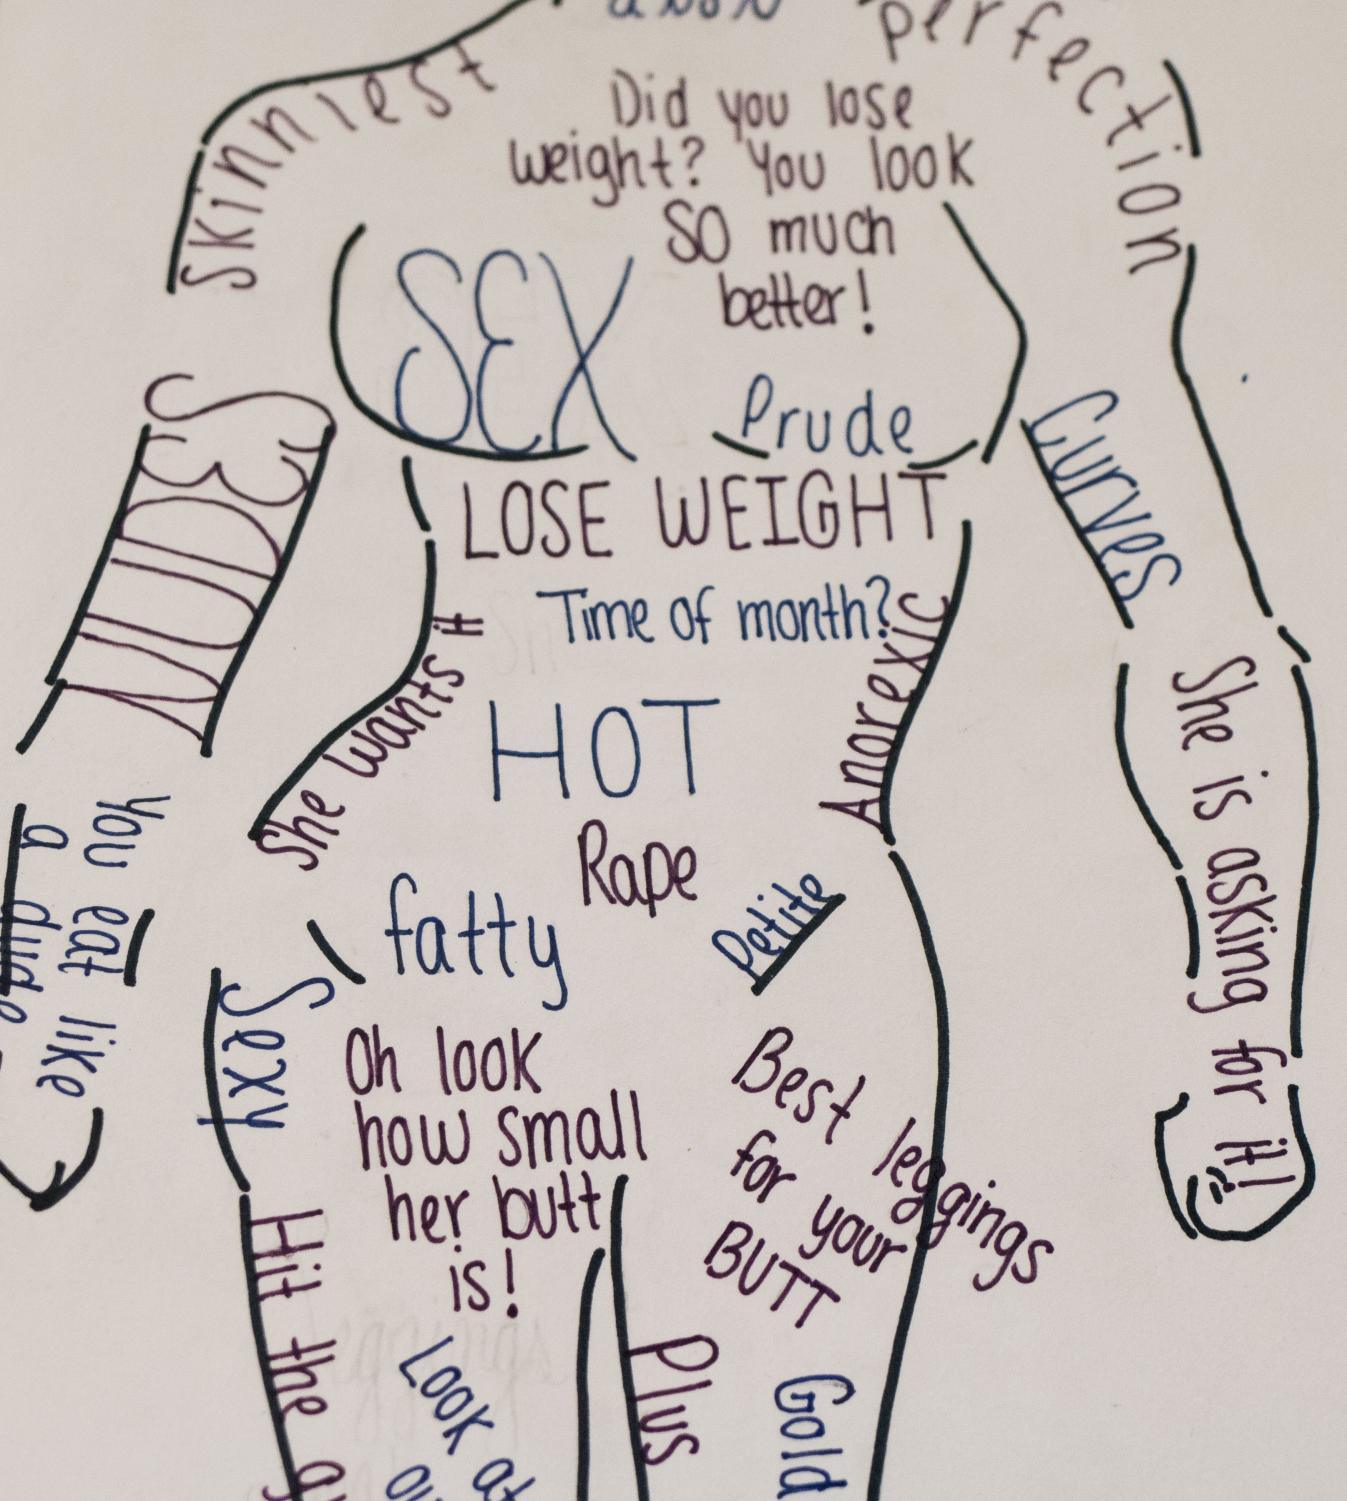 perfection
Skinniest
Did you lose
weight? You look
SO much
better!
SEX
Prude
NUDES
Curves
LOSE WEIGHT
Time of month?
She wants it
Anorexic
HOT
She is asking for it!
You eat like
a dude
Rape
fatty
Petite
Sexy
Oh look
how small
her butt
is!
Best leggings
for your
BUTT
Hit the
Look at
Plus
Gold